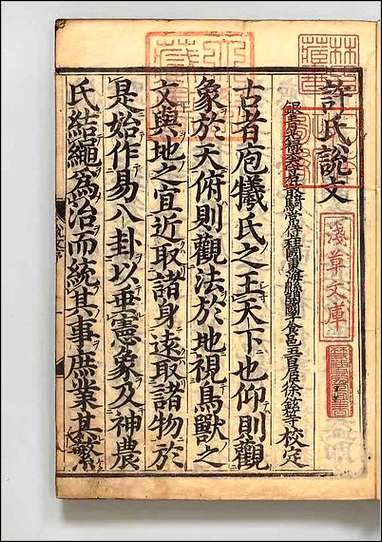 許氏說文
銀青光祿大夫守右散騎常侍上柱國東海縣開國子食邑五百戶徐鉉等校定
古者庖犧氏之王天下也仰則觀
象於天俯則觀法於地視鳥獸之
文與地之宜近取諸身遠取諸物於
是始作易八卦以垂憲象及神農
氏結繩爲治而統其事庶業其繁
淺草文庫